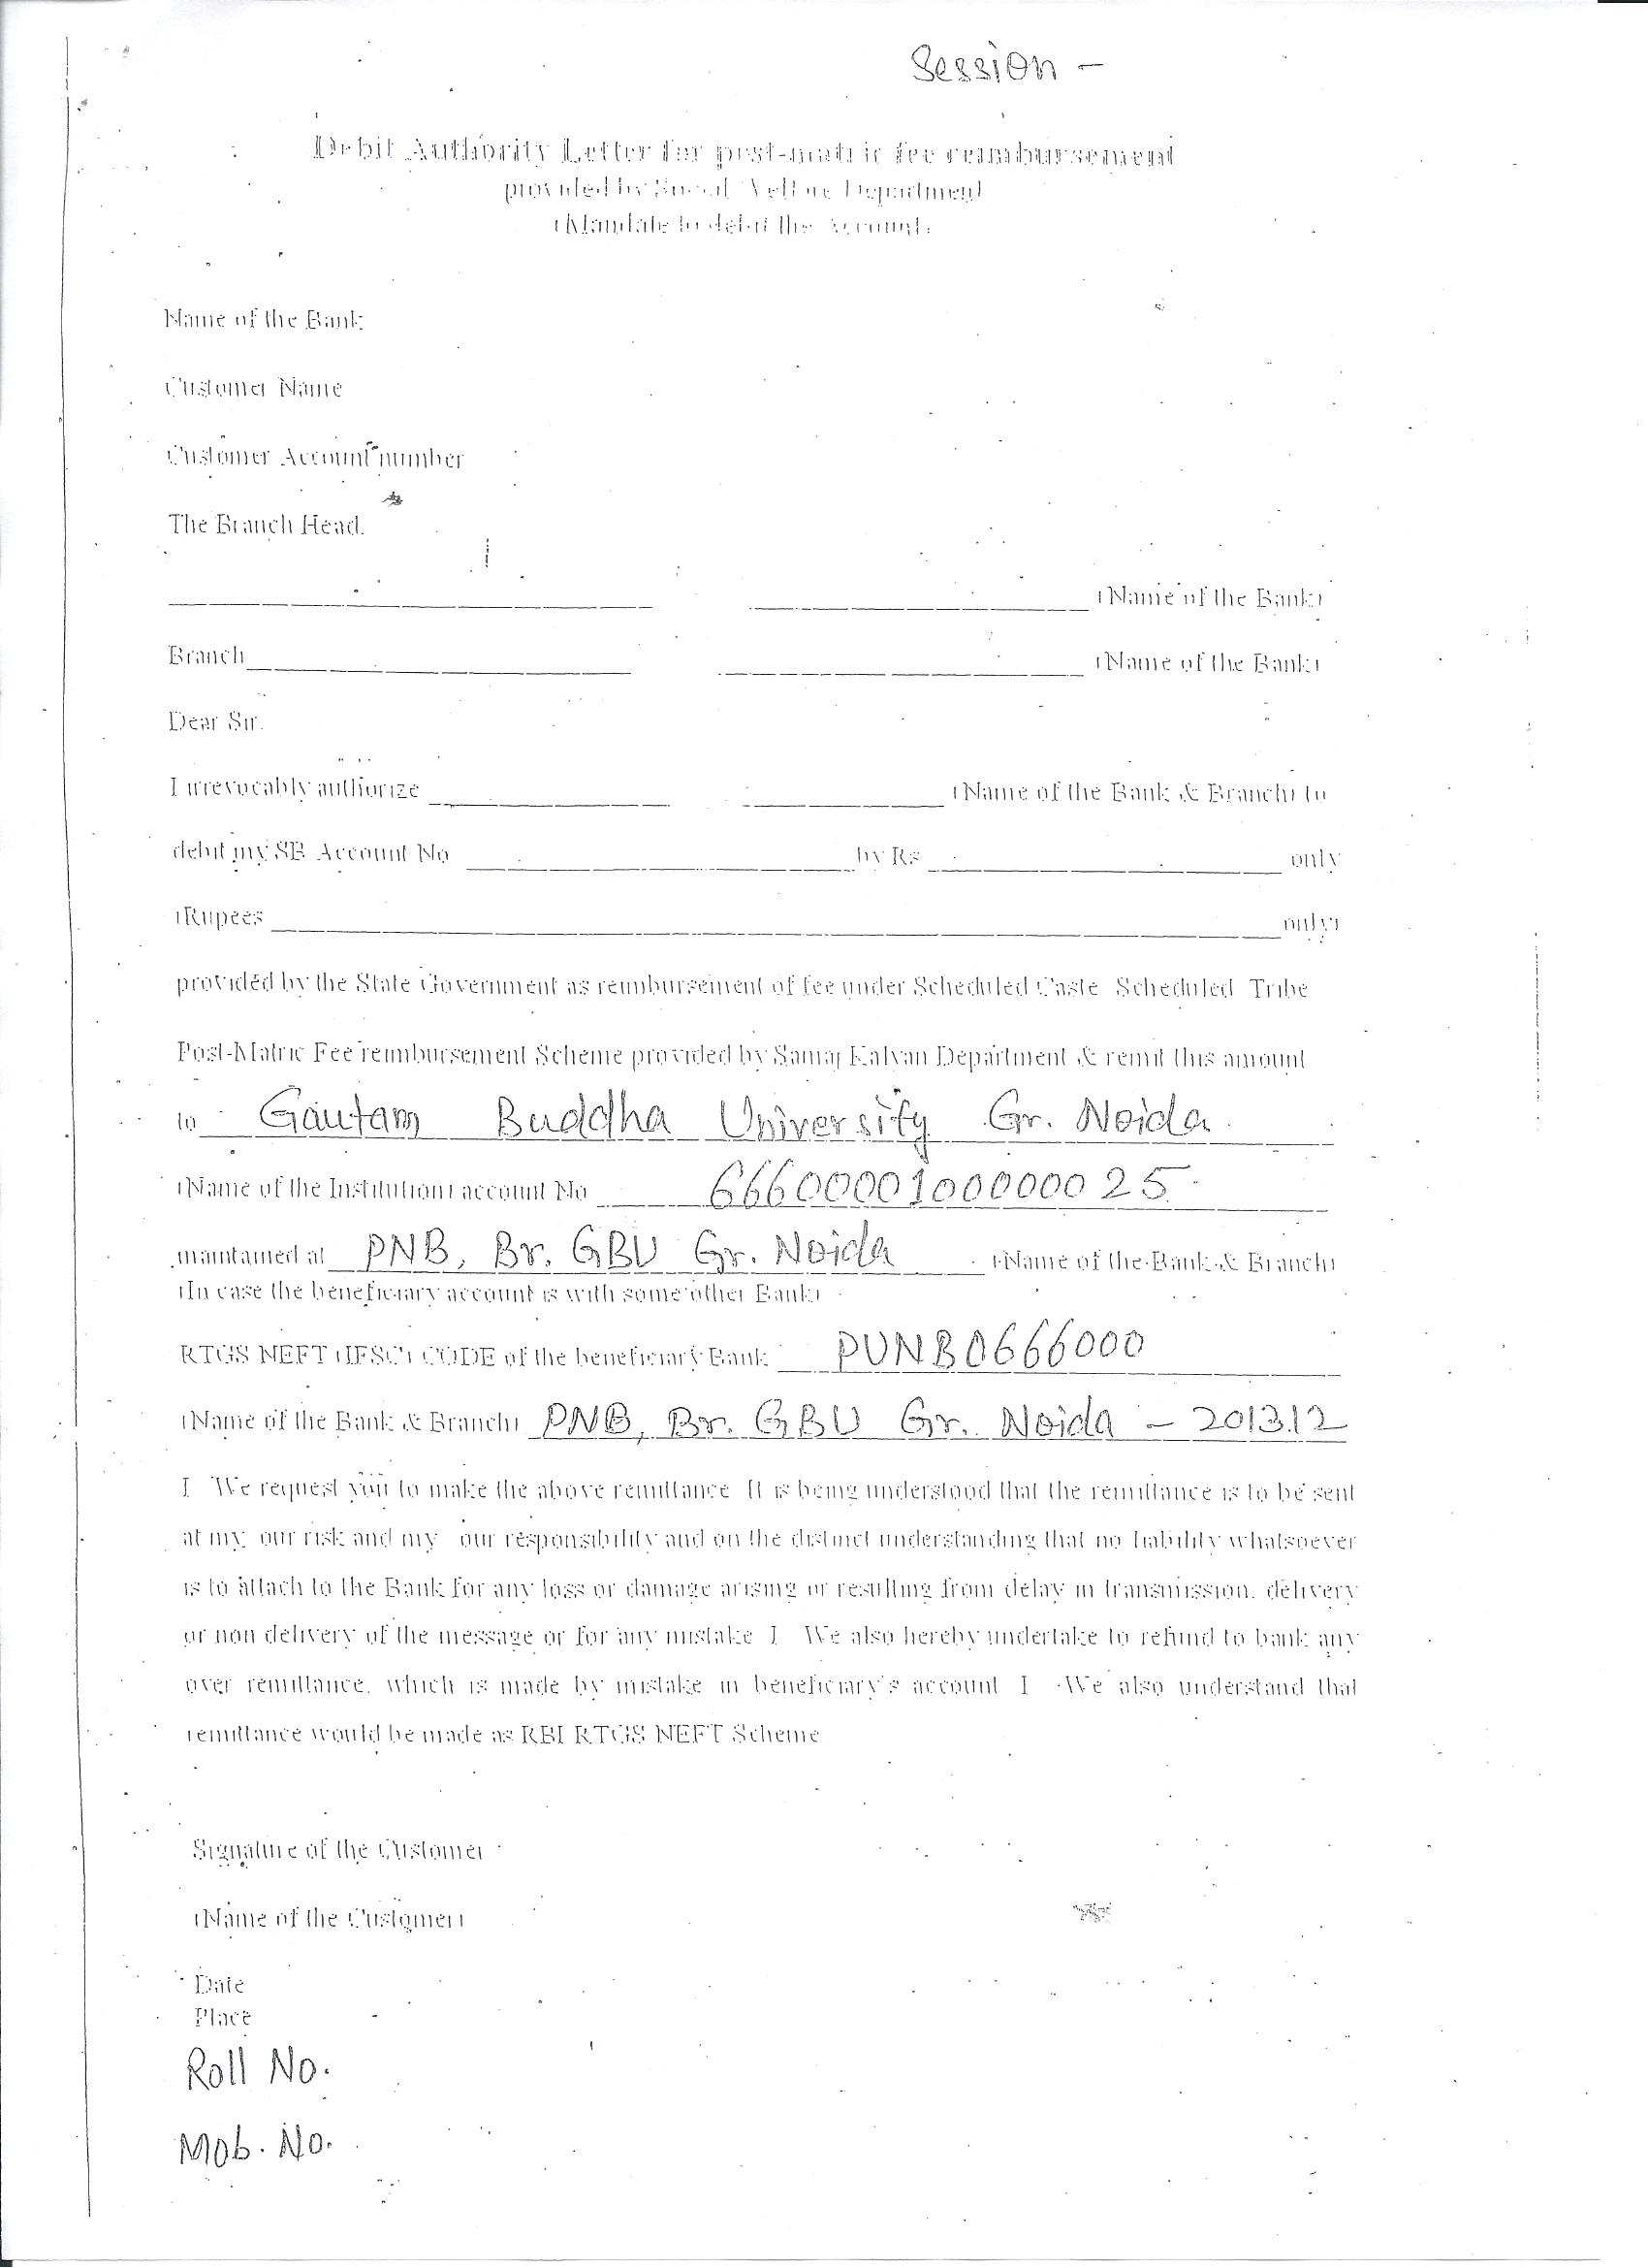 Session -
Debit Authority Letter for post-matric fee reimbursement
provided by Social Welfare Department
(Mandate to debit the Account)
Name of the Bank
Customer Name
Customer Account number
The Branch Head.
____________________ ____________________ (Name of the Bank)
Branch____________________ ____________________ (Name of the Bank)
Dear Sir.
I irrevocably authorize ____________________ ____________________ (Name of the Bank & Branch) to
debit my SB Account No ____________________ by Rs ____________________ only
(Rupees ____________________ only)
provided by the State Government as reimbursement of fee under Scheduled Caste Scheduled Tribe
Post-Matric Fee reimbursement Scheme provided by Samaj Kalyan Department & remit this amount
to Gautam Buddha University Gr. Noida
(Name of the Institution) account No 6660000100000025
maintained at PNB, Br. GBU Gr. Noida (Name of the Bank & Branch)
(In case the beneficiary account is with some other Bank)
RTGS NEFT (IFSC) CODE of the beneficiary Bank PUNB0666000
(Name of the Bank & Branch) PNB, Br. GBU Gr. Noida - 201312
I We request you to make the above remittance It is being understood that the remittance is to be sent
at my our risk and my our responsibility and on the distinct understanding that no liability whatsoever
is to attach to the Bank for any loss or damage arising or resulting from delay in transmission. delivery
or non delivery of the message or for any mistake I We also hereby undertake to refund to bank any
over remittance. which is made by mistake in beneficiary's account I We also understand that
remittance would be made as RBI RTGS NEFT Scheme
Signature of the Customer
(Name of the Customer)
Date
Place
Roll No.
Mob. No.